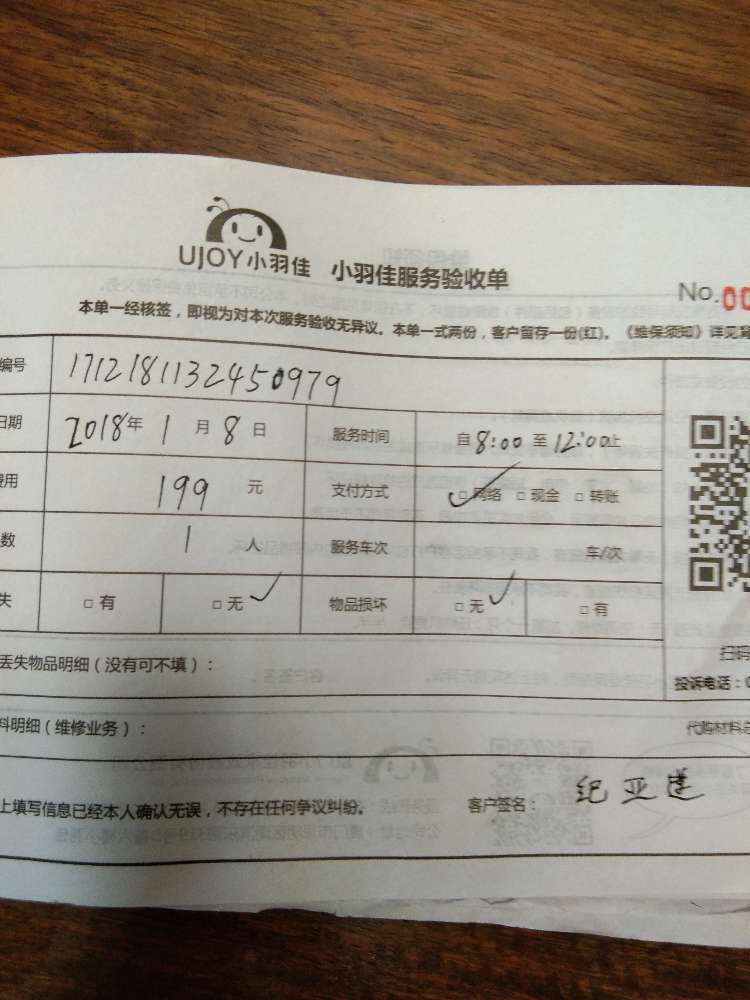 UJOY小羽佳 小羽佳服务验收单
No.00
本单一经核签,即视为对本次服务验收无异议。本单一式两份,客户留存一份(红)。《维保须知》详见背
编号 1712181132450979
日期 2018年 1 月 8 日 服务时间 自 8:00 至 12:00止
费用 199 元 支付方式 □网络 □现金 □转账
数 1 人 服务车次 车/次
失 □有 □无 物品损坏 □无 □有
扫码
丢失物品明细(没有可不填):
投诉电话:0
料明细(维修业务): 代购材料总
上填写信息已经本人确认无误,不存在任何争议纠纷。 客户签名: 纪亚莲